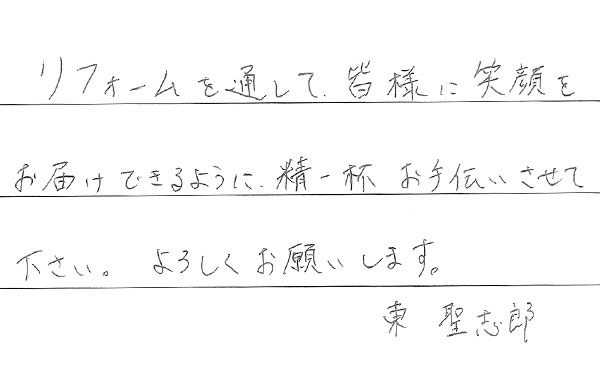 リフォームを通して、皆様に笑顔を
お届けできるように、精一杯 お手伝いさせて
下さい。 よろしくお願いします。
東 聖志郎